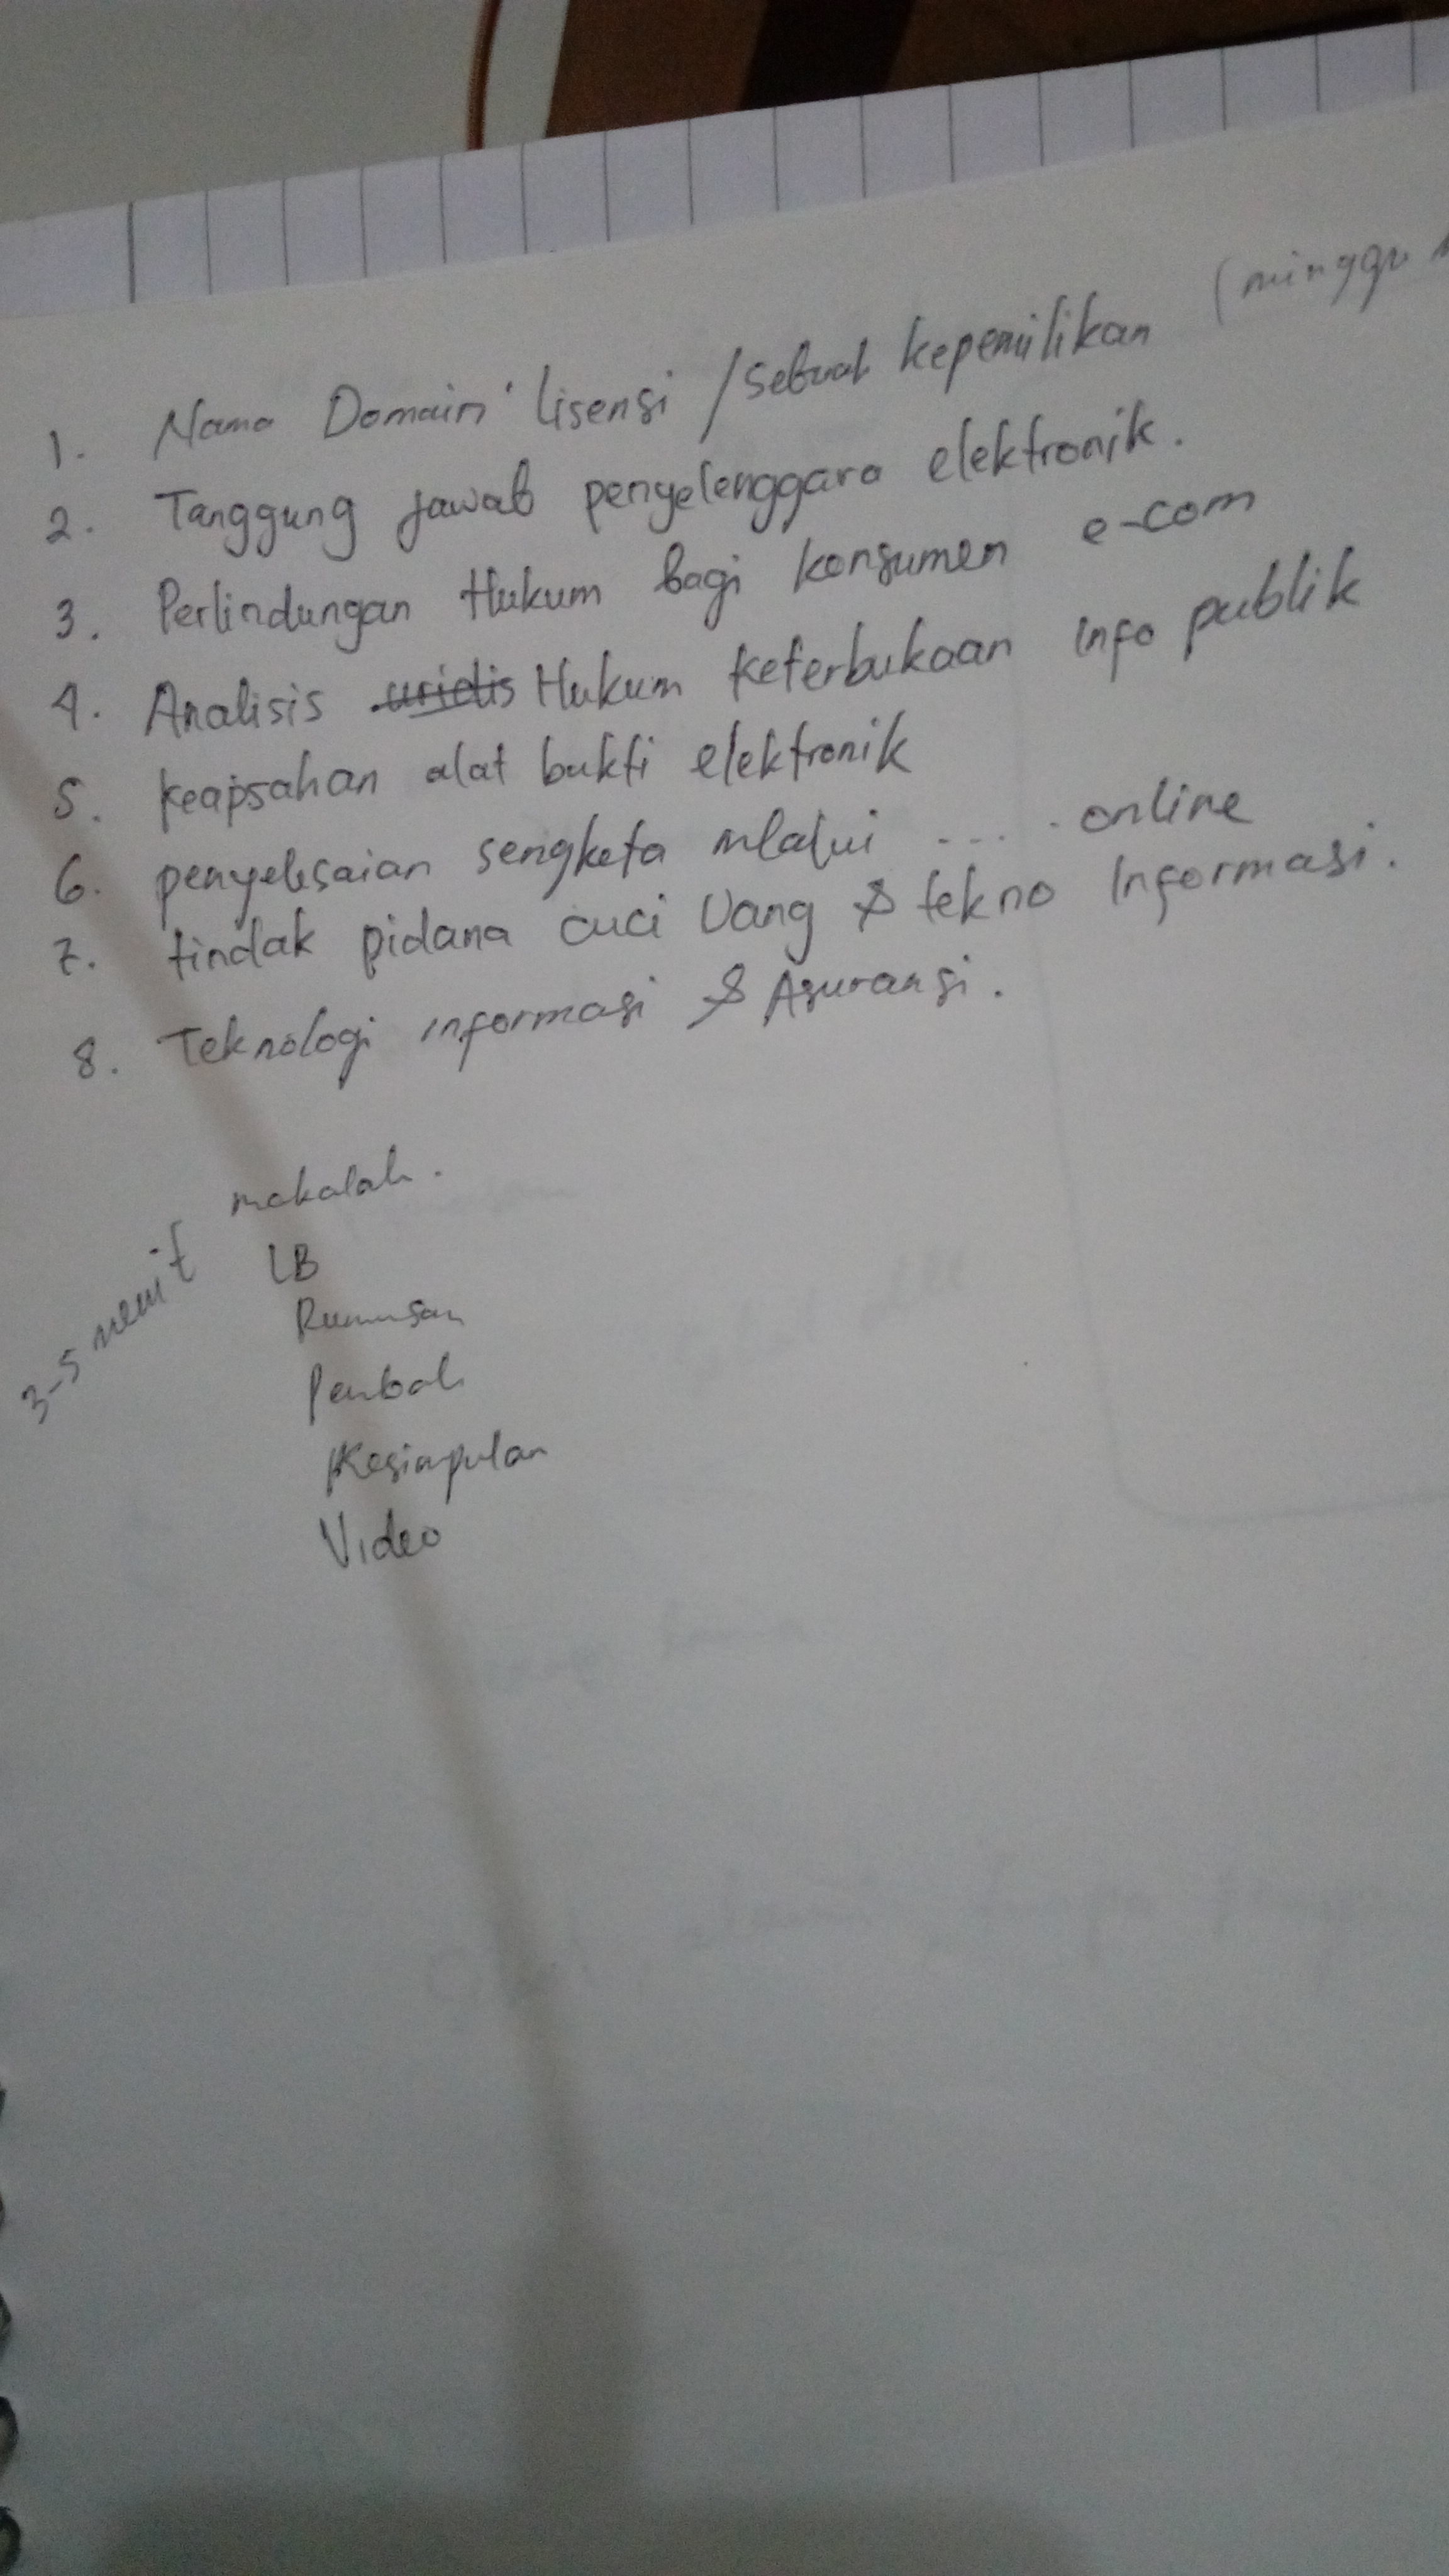 (minggu
1. Nama Domain lisensi / sebuah kepemilikan
2. Tanggung jawab penyelenggara elektronik.
3. Perlindungan Hukum bagi konsumen e-com
4. Analisis uridis Hukum keterbukaan info publik
5. keapsahan alat bukti elektronik
6. penyelesaian sengketa mlalui .... online
7. tindak pidana cuci Uang & tekno Informasi.
8. Teknologi informasi & Asuransi.
makalah.
3-5 menit
LB
Rumusan
Pembah
Kesimpulan
Video